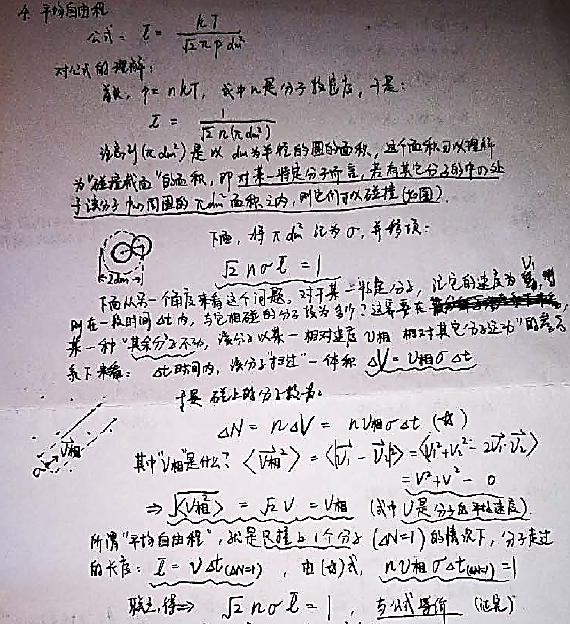 4. 平均自由程
公式: l̄ = kT / √2 π p dm²
对公式的理解:
首先, p = nkT, 式中 n 是分子数密度, 于是:
l̄ = 1 / √2 n (π dm²)
注意到 (π dm²) 是以 dm 为半径的圆的面积, 这个面积可以理解
为"碰撞截面"的面积, 即对某一特定分子而言, 若有其它分子的中心处
于该分子中心周围的 π dm² 面积之内, 则它们可以碰撞 (如图).
2dm
下面, 将 π dm² 记为 σ, 并移项:
√2 n σ l̄ = 1
下面从另一个角度来看这个问题. 对于某一特定分子, 记它的速度为 V₁, 
则在一段时间 Δt 内, 与它相碰的分子数为多少? 这需要在
某一种"其余分子不动, 该分子以某一相对速度 V相 相对其它分子运动"的参考
系下来看: Δt 时间内, 该分子"扫过"一体积 ΔV = V相 σ Δt
于是 碰上的分子数为:
ΔN = n ΔV = n V相 σ Δt (*)
V相
其中"V相"是什么? ⟨V相²⟩ = ⟨|V₁ - V₂|²⟩ = ⟨V₁² + V₂² - 2V₁·V₂⟩
= V² + V² - 0
⇒ √⟨V相²⟩ = √2 V = V相 (式中 V 是分子的平均速度)
所谓"平均自由程", 就是只撞上1个分子 (ΔN=1) 的情况下, 分子走过
的长度: l̄ = V Δt(ΔN=1), 由(*)式, n V相 σ Δt(ΔN=1) = 1
联立, 得 ⇒ √2 n σ l̄ = 1, 与公式等价 (证完)